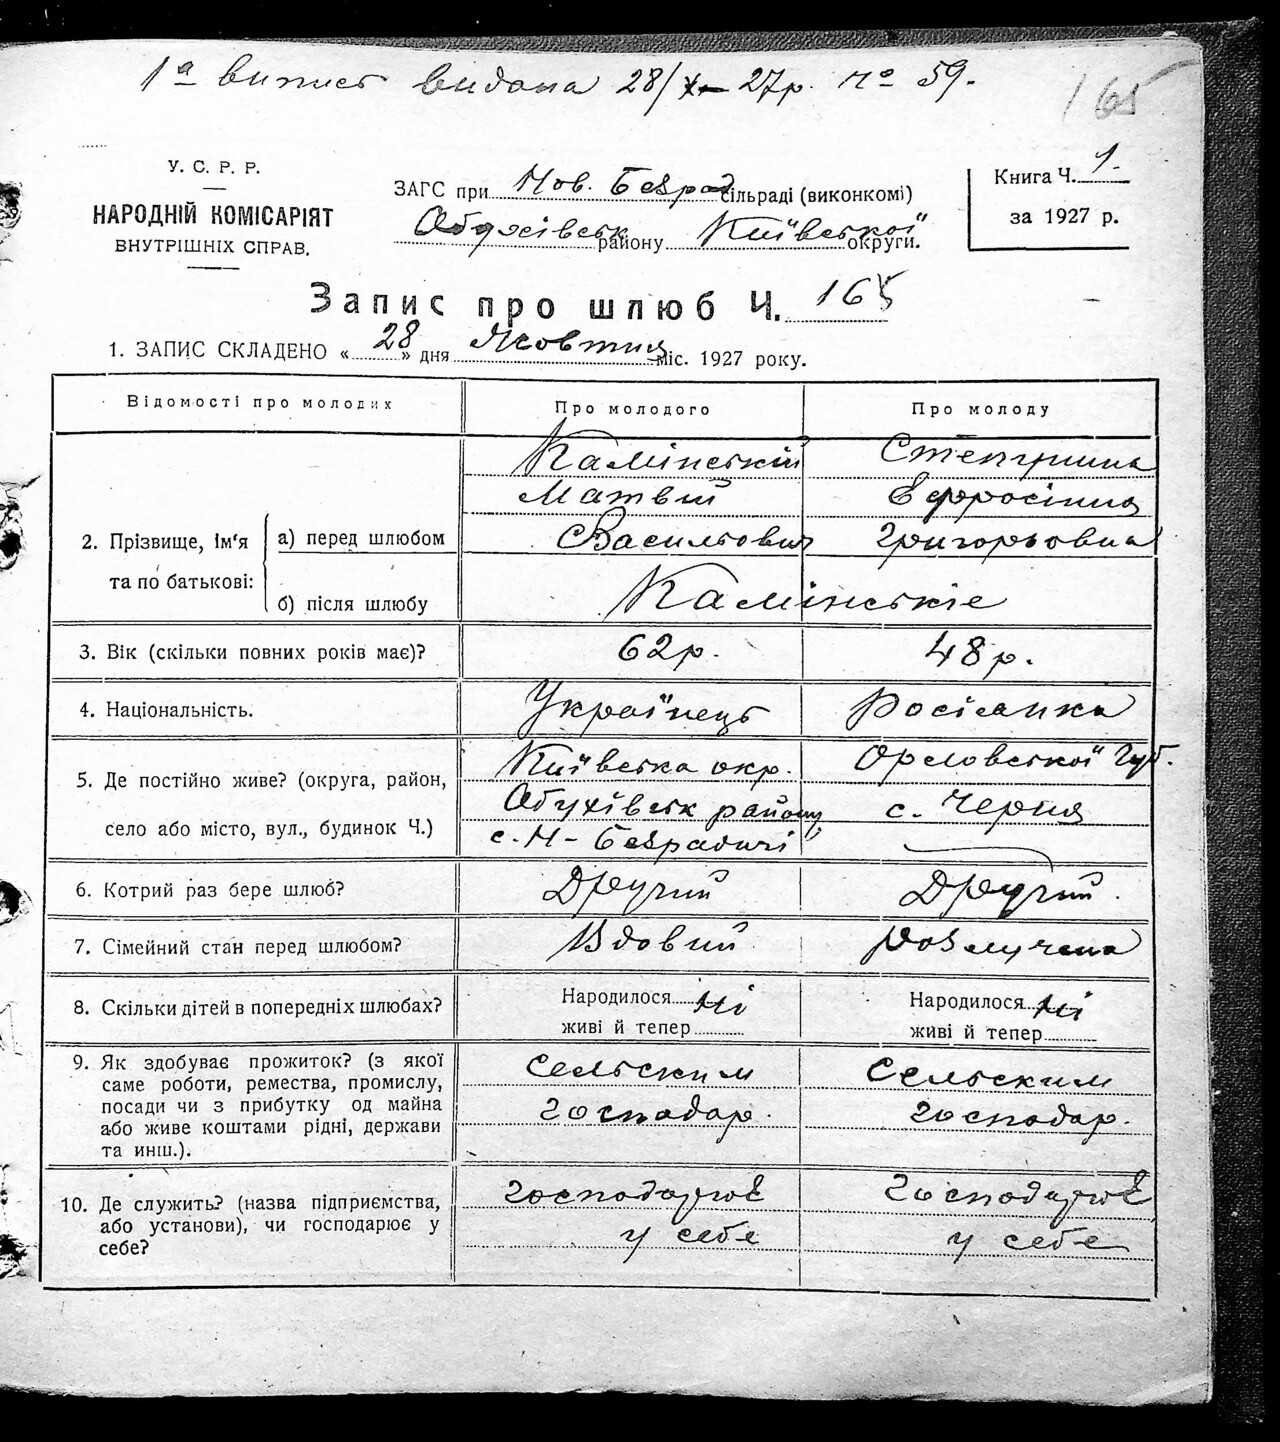 1а випись видана 28/X–27р. №о 59.
165
У. С. Р. Р.
НАРОДНІЙ КОМІСАРІЯТ
ВНУТРІШНІХ СПРАВ.
ЗАГС при Нов. Безрад сільраді (виконкомі)
Обухівськ району Київської округи.
Книга Ч. 1.
за 1927 р.
Запис про шлюб Ч. 165
1. ЗАПИС СКЛАДЕНО « 28 » дня Жовтня міс. 1927 року.
Відомості про молодих Про молодого Про молоду
2. Прізвище, ім'я та по батькові:
а) перед шлюбом
Камінській
Матвій
Васильович
Ефросінія
Григорьовна
б) після шлюбу
Камінськіе
3. Вік (скільки повних років має)? 62р. 48р.
4. Національність. Українець Росіянка
5. Де постійно живе? (округа, район,
село або місто, вул., будинок Ч.)
Київська окр.
Обухівськ району,
с. Н-Безрадичі
Орловської Губ.
с. Черня
6. Котрий раз бере шлюб? Другий Другий.
7. Сімейний стан перед шлюбом? Вдовий Розлучена
8. Скільки дітей в попередніх шлюбах?
Народилося ні
живі й тепер
Народилося ні
живі й тепер
9. Як здобуває прожиток? (з якої
саме роботи, ремества, промислу,
посади чи з прибутку од майна
або живе коштами рідні, держави
та инш.).
Сельским
господар.
Сельским
господар.
10. Де служить? (назва підприємства,
або установи), чи господарює у
себе?
господарює
у себе
господарює
у себе